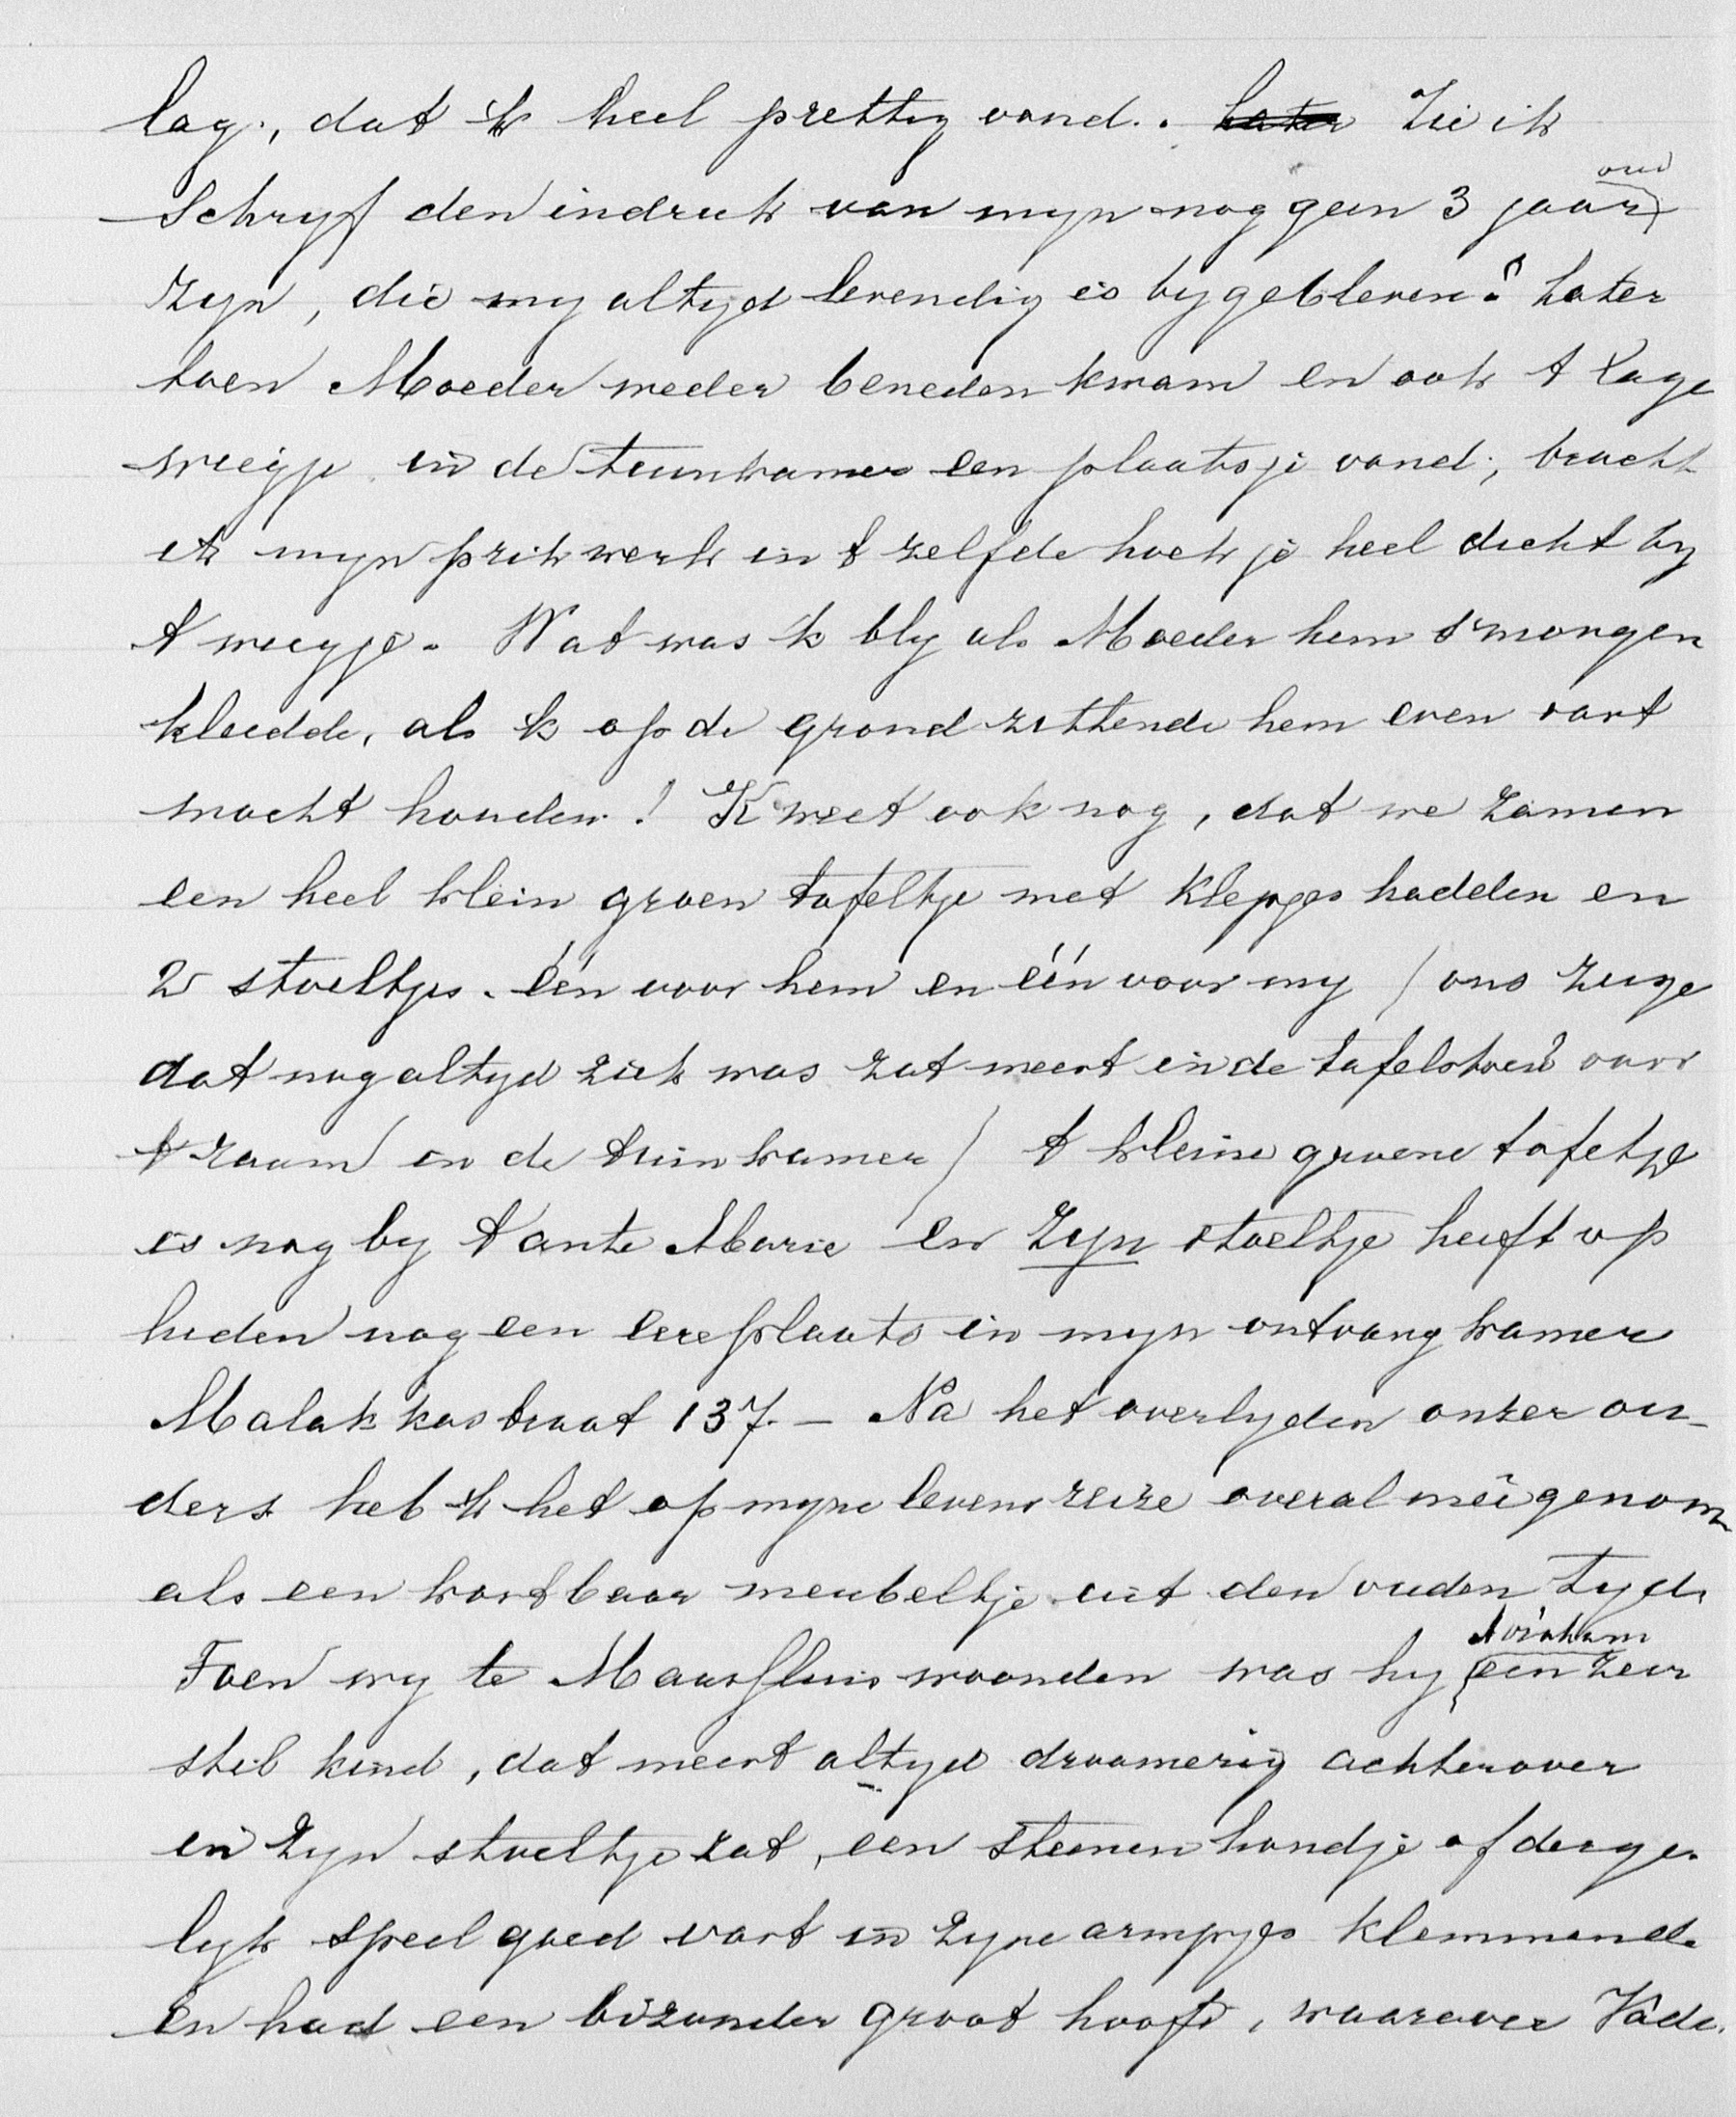 lag, dat 'k heel prettig vond. Later Zie ik
schryf den indruk van myn nog geen 3 jaar oud
zyn, die my altyd levendig is bygebleven. Later
toen Moeder weder beneden kwam en ook 't lage
wiegje in de tuinkamer een plaatsje vond, bracht
ik myn prikwerk in 't zelfde hoekje heel dicht by
't wiegje. Wat was 'k bly als Moeder hem 's morgen
kleedde, als 'k op de grond zittende hem even vast
mocht houden! 'K weet ook nog, dat we zamen
een heel klein groen tafeltje met klepjes hadden en
2 stoeltjes. één voor hem en één voor my (ons zusje
dat nog altyd ziek was zat meest in de tafelstoel voor
't raam in de tuinkamer) 't kleine groene tafeltje
is nog by Tante Marie en zyn stoeltje heeft op
heden nog een eereplaats in myn ontvangkamer
Malakkastraat 137. – Na het overlyden onzer ou-
ders heb 'k het op myne levensreize overal meêgenom
als een kostbaar meubeltje uit den ouden tyd.
Toen wy te Maassluis woonden was hy Abraham een zeer
stil kind, dat meest altyd droomerig achterover
in zyn stoeltje zat, een steenen hondje of derge-
lyk speelgoed vast in zyne armpjes klemmende
en had een bizonder groot hoofd, waarover Vade.